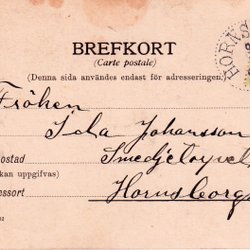 BREFKORT
(Carte postale)
(Denna sida användes endast för adresseringen.)
BORÅS
Fröken
Ida Johansson
ostad Smedjetorpet
kan uppgifvas)
essort Hornsborg